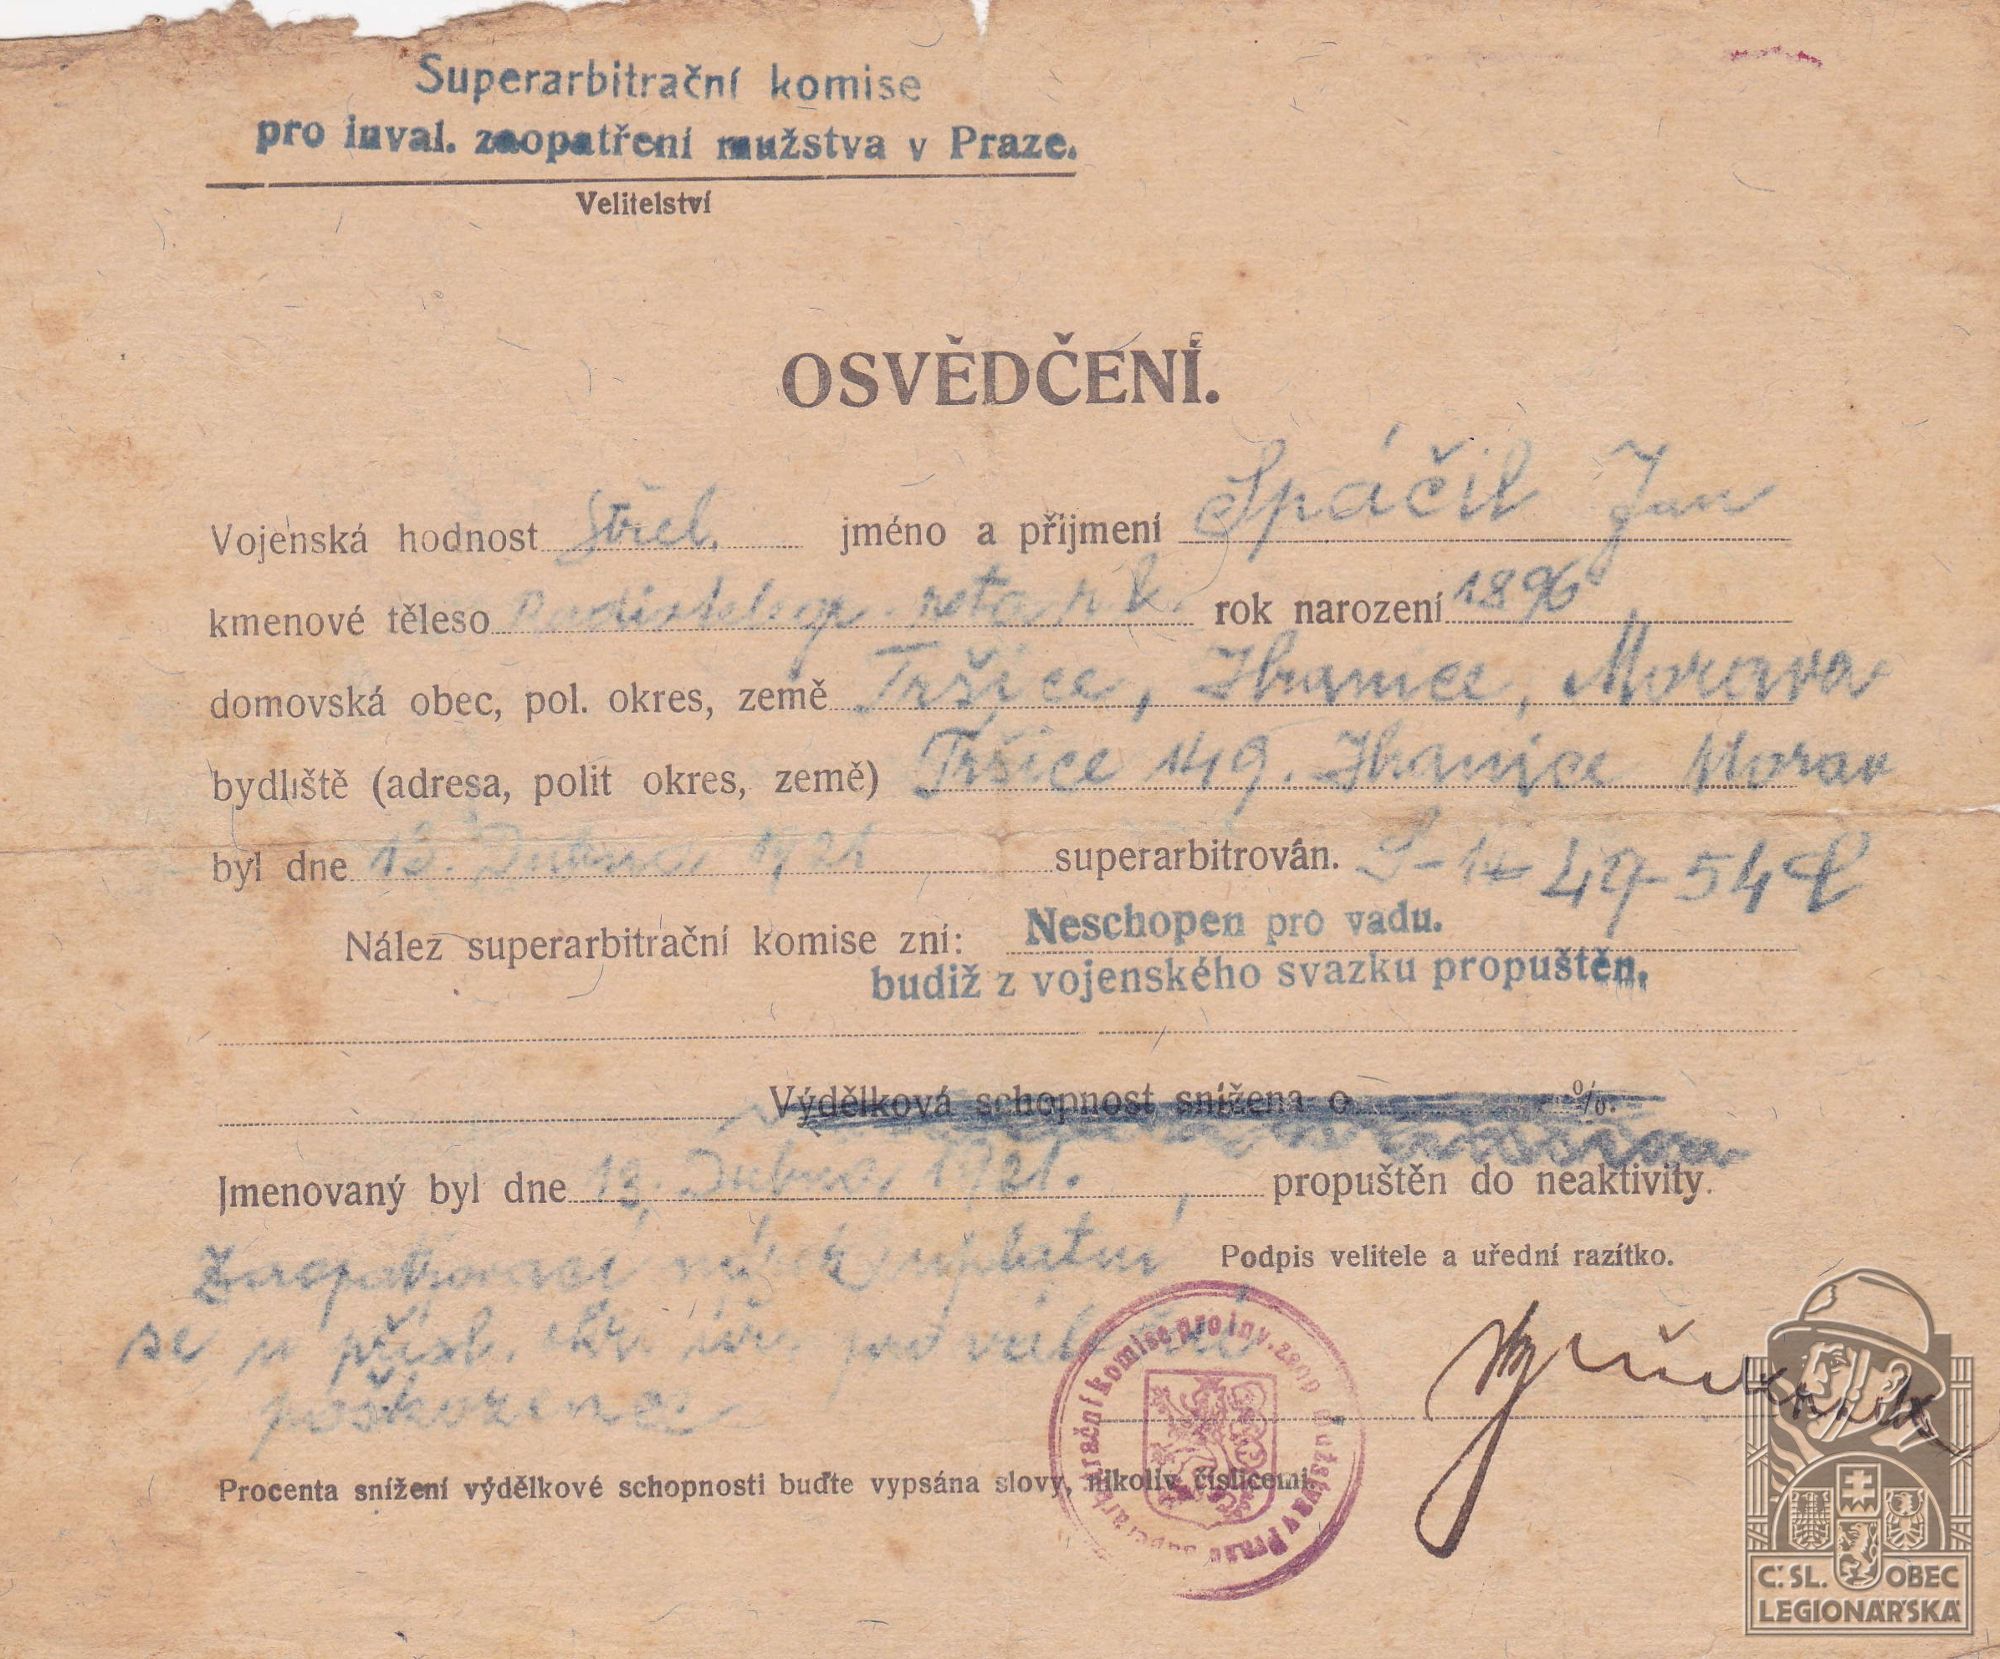 Superarbitrační komise
pro inval. zaopatření mužstva v Praze.
Velitelství
OSVĚDČENÍ.
Vojenská hodnost Střel. jméno a příjmení Spáčil Jan
kmenové těleso rok narození 1896
domovská obec, pol. okres, země Tršice, Hranice, Morava
bydliště (adresa, polit okres, země) Tršice 149. Hranice Morav
byl dne 13. Dubna 1921 superarbitrován.
Nález superarbitrační komise zní: Neschopen pro vadu.
budiž z vojenského svazku propuštěn.
Výdělková schopnost snížena o %.
Jmenovaný byl dne 13. Dubna 1921. propuštěn do neaktivity.
Zaopatřovací
Podpis velitele a uřední razítko.
se u přísl. úř. pro
poškozence
Procenta snížení výdělkové schopnosti buďte vypsána slovy, nikoliv číslicemi.
Superarbitrační komise pro inv. zaop. mužstva v Praze
Č. SL. OBEC
LEGIONÁŘSKÁ